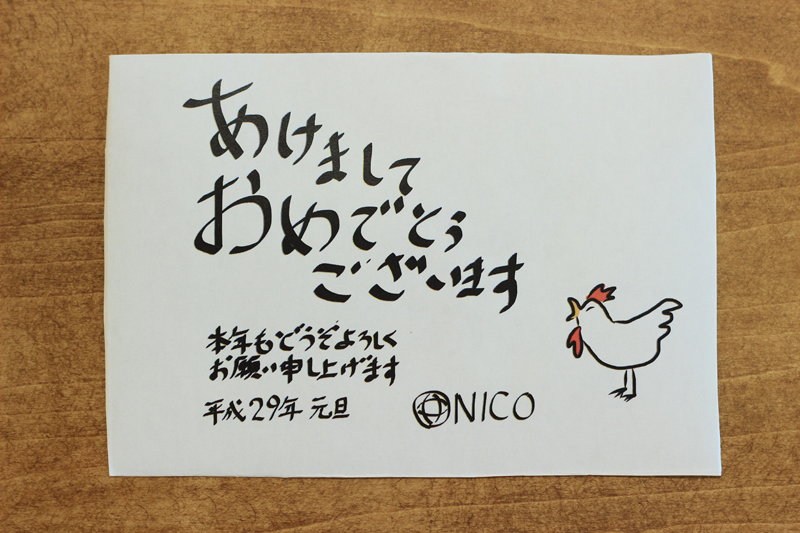 あけまして
おめでとう
ございます
本年もどうぞよろしく
お願い申し上げます
平成29年 元旦
NICO